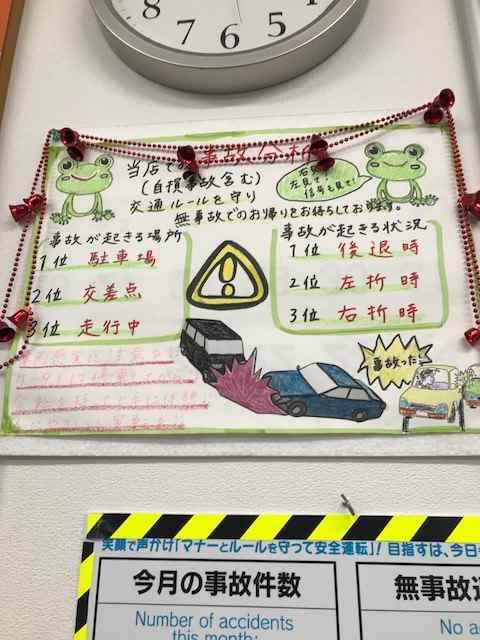 8 7 6 5 4
当店での事故分析
(自損事故含む)
交通ルールを守り
無事故でのお帰りをお待ちしております。
右見て
左見て
信号も見て!
事故が起きる場所
1位 駐車場
2位 交差点
3位 走行中
事故が起きる状況
1位 後退時
2位 左折時
3位 右折時
事故った!
笑顔で声かけ「マナーとルールを守って安全運転」! 目指すは、今日
今月の事故件数
Number of accidents
this month:
無事故
No a